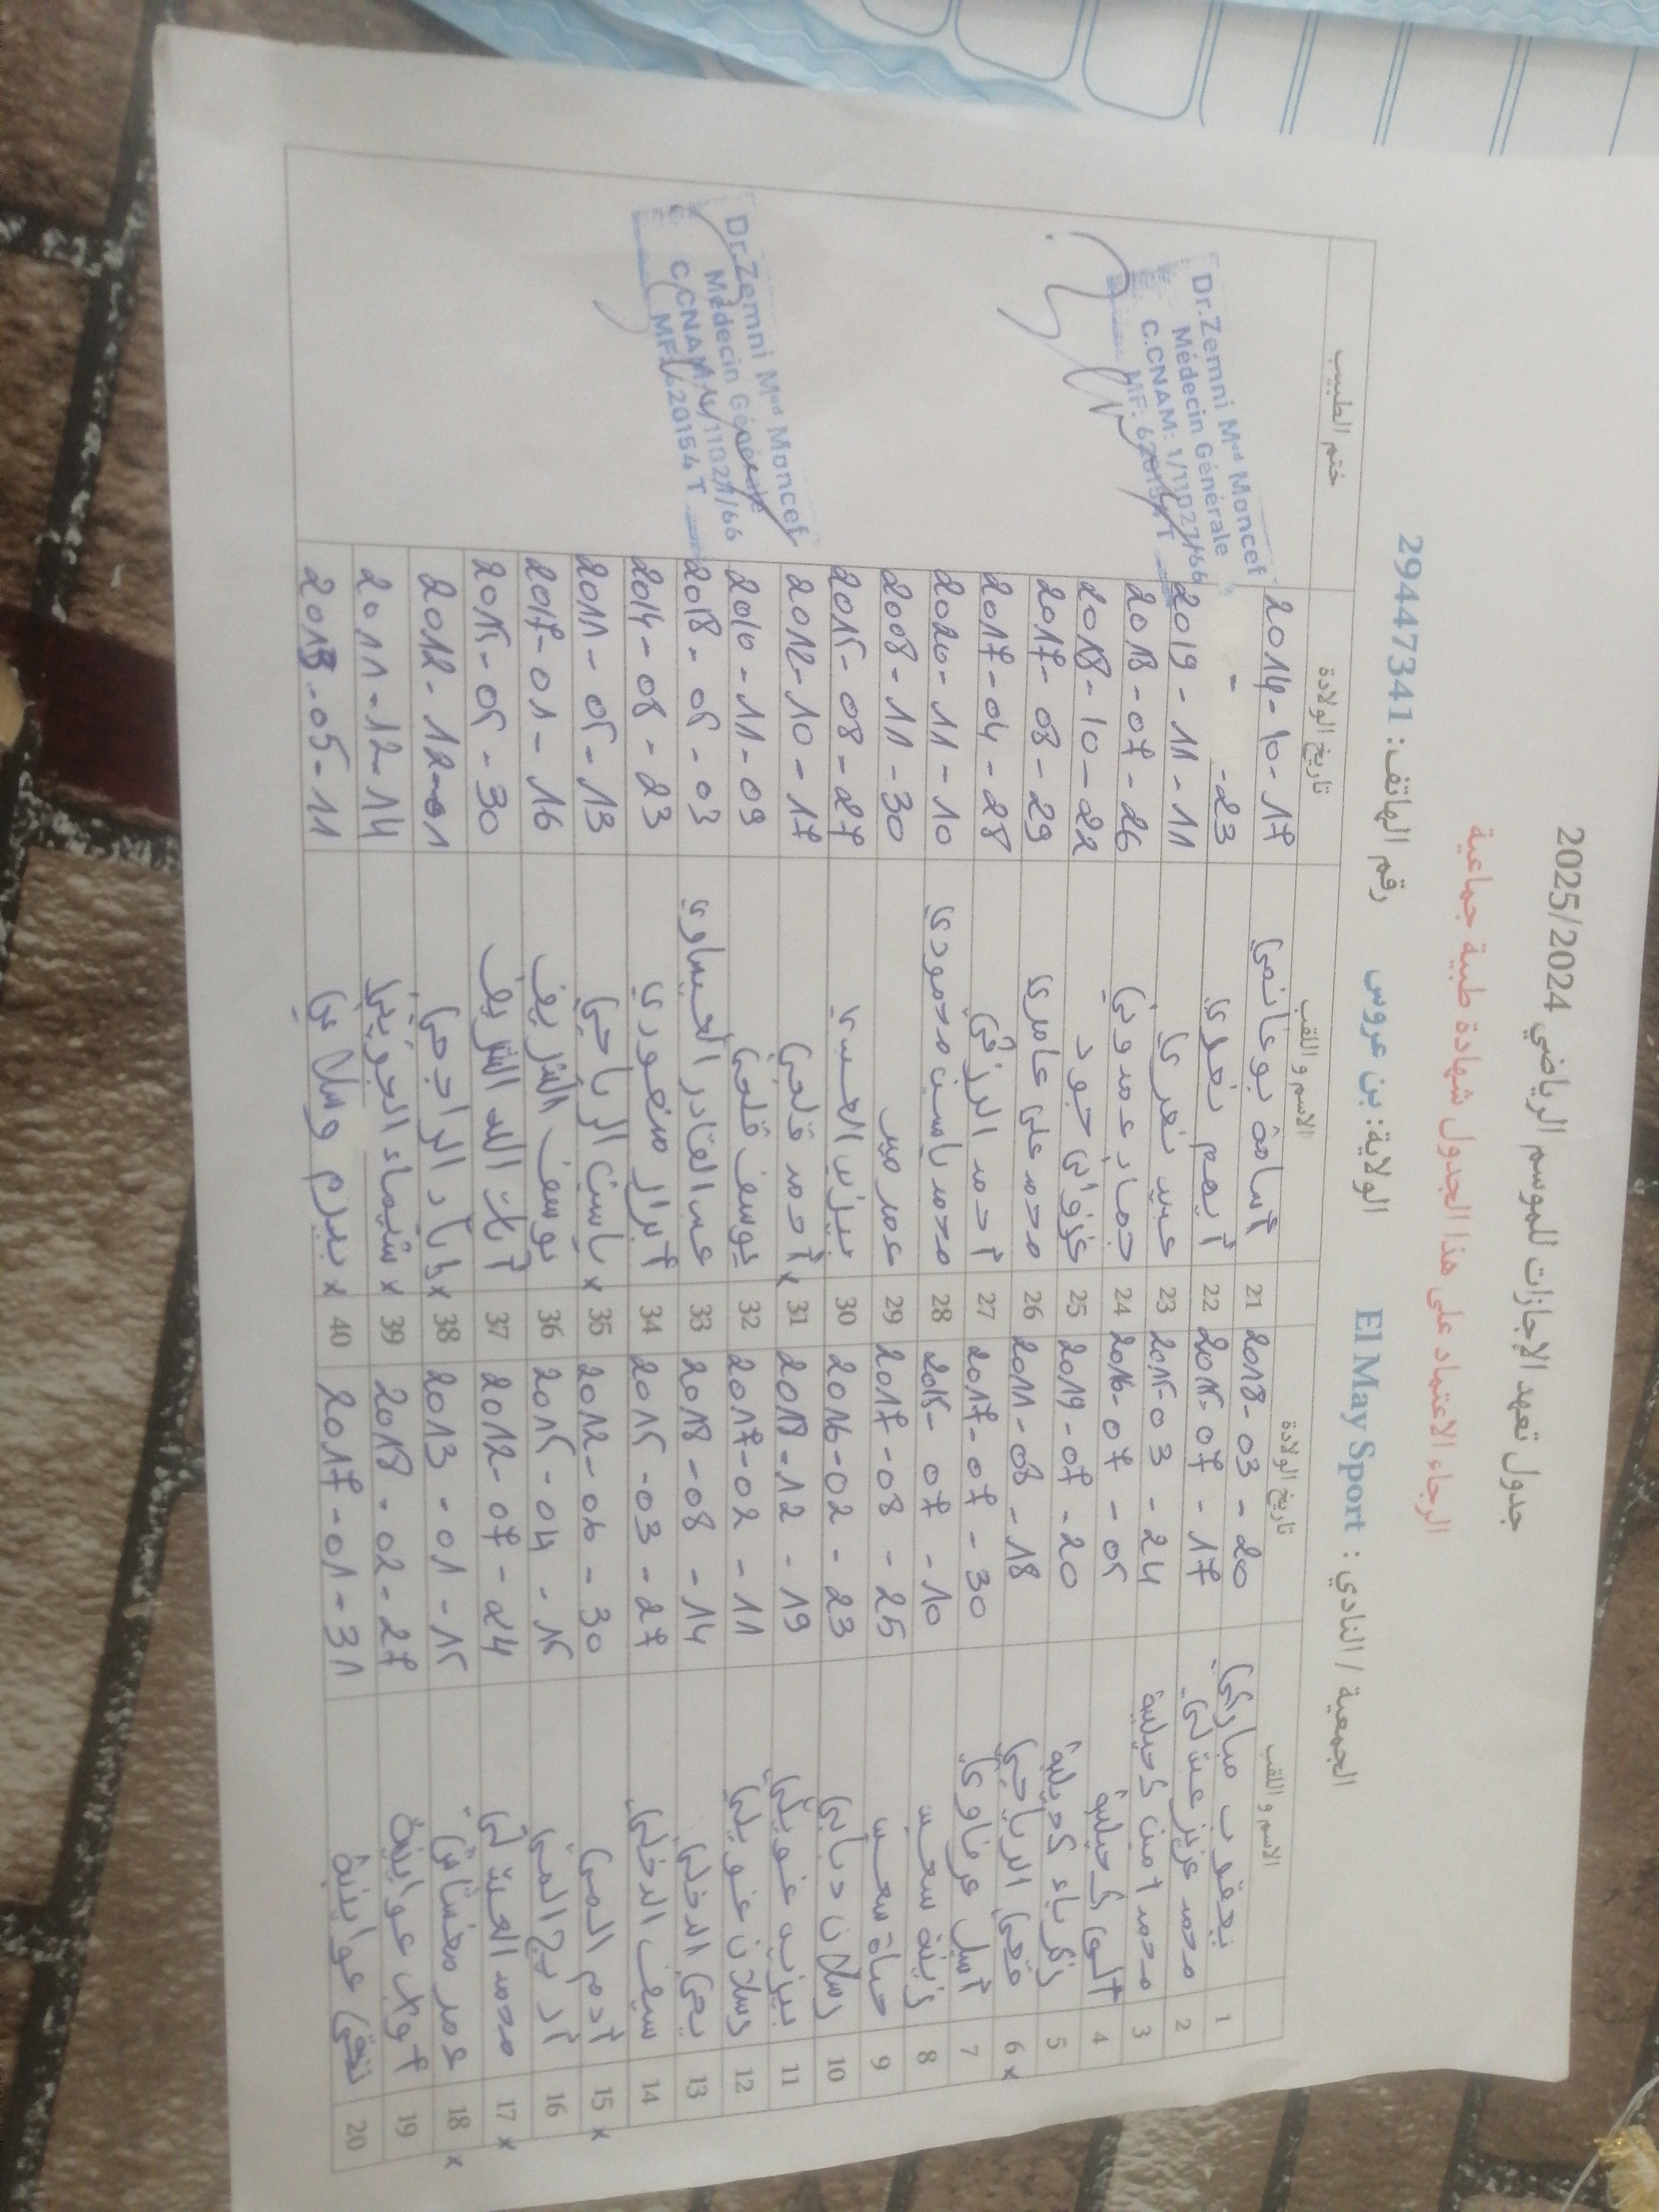 جدول تعهد الإجازات للموسم الرياضي 2025/2024
الرجاء الاعتماد على هذا الجدول شهادة طبية جماعية
الجمعية / النادي : El May Sport الولاية: بن عروس رقم الهاتف: 29447341
الاسم و اللقب تاريخ الولادة الاسم و اللقب تاريخ الولادة ختم الطبيب
1 يعقوب مباركي 2018-03-20 21 أسامة بوغانمي 2014-10-17
2 محمد عزيز 2015-07-17 22 -23
3 محمد أمين كحيلية 2015-03-24 23 2019-11-11
4 كحيلية 2016-07-05 24 2018-07-26
5 زكرياء كحيلية 2019-07-20 25 2018-10-22
6 x الرياحي 2011-08-18 26 محمد علي عامري 2017-08-29
7 أسيل عرفاوي 2017-07-30 27 أحمد الرزقي 2017-04-28
8 زينة 2015-07-10 28 محمد ياسين محمودي 2020-11-10
9 حياة 2017-08-25 29 عمر 2008-11-30
10 رسلان دبابي 2016-02-23 30 بيرم 2015-08-27
11 2018-12-19 31 x أحمد قلعي 2012-10-17
12 رسلان غويلي 2017-02-11 32 يوسف قلعي 2010-11-09
13 يحي الدخلي 2018-08-14 33 عبد القادر العيساوي 2018-05-03
14 سيف الدخلي 2015-03-27 34 أبرار منصوري 2014-08-23
15 x آدم المي 2012-06-30 35 x ياسين الرياحي 2011-05-13
16 أريج المي 2015-04-15 36 يوسف الشريف 2017-01-16
17 x محمد 2012-07-24 37 آية الله الشريف 2015-05-30
18 x عمر 2013-01-15 38 x إياد الراجحي 2012-12-01
19 أواب عواينية 2018-02-27 39 x شيماء الجويني 2011-12-14
20 تقى عواينية 2017-01-31 40 x بيرم وسلاتي 2013-05-11
Dr.Zemni Med Moncef
Médecin Générale
C.CNAM: 1/11027/66
MF: 620154 T
Dr.Zemni Med Moncef
Médecin Générale
C.CNAM: 1/11027/66
MF: 620154 T